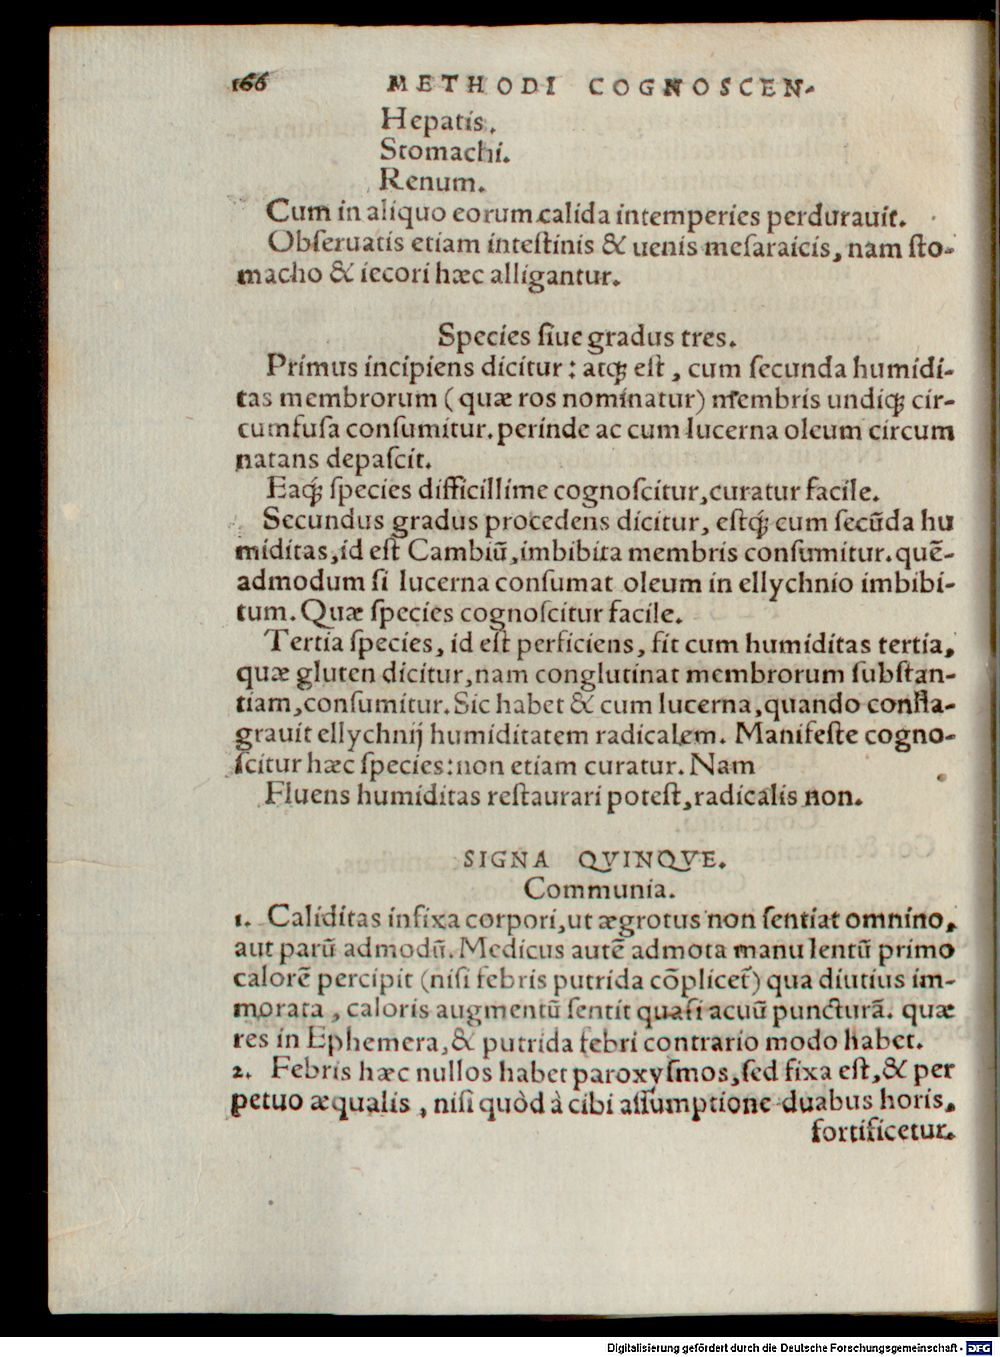 166 METHODI COGNOSCEN-
Hepatis.
Stomachi.
Renum.
Cum in aliquo eorum calida intemperies perdurauit.
Obſeruatis etiam inteſtinis & uenis meſaraicis, nam ſto-
macho & iecori hæc alligantur.
Species ſiue gradus tres.
Primus incipiens dicitur: atq́ꝫ eſt, cum ſecunda humidi-
tas membrorum (quæ ros nominatur) membris undiqꝫ cir-
cumfuſa conſumitur. perinde ac cum lucerna oleum circum
natans depaſcit.
Eaq́ꝫ ſpecies difficillime cognoſcitur, curatur facile.
Secundus gradus procedens dicitur, eſtq́ꝫ cum ſecūda hu
miditas, id eſt Cambiū, imbibita membris conſumitur. quē-
admodum ſi lucerna conſumat oleum in ellychnio imbibi-
tum. Quæ ſpecies cognoſcitur facile.
Tertia ſpecies, id eſt perficiens, fit cum humiditas tertia,
quæ gluten dicitur, nam conglutinat membrorum ſubſtan-
tiam, conſumitur. Sic habet & cum lucerna, quando confla-
grauit ellychnij humiditatem radicalem. Manifeſte cogno-
ſcitur hæc ſpecies: non etiam curatur. Nam
Fluens humiditas reſtaurari poteſt, radicalis non.
SIGNA QVINQVE.
Communia.
1. Caliditas infixa corpori, ut ægrotus non ſentiat omnino,
aut parū admodū. Medicus autē admota manu lentū primo
calorē percipit (niſi febris putrida cōplicet̄) qua diutius im-
morata, caloris augmentū ſentit quaſi acuū puncturā. quæ
res in Ephemera, & putrida febri contrario modo habet.
2. Febris hæc nullos habet paroxyſmos, ſed fixa eſt, & per
petuo æqualis, niſi quòd à cibi aſſumptione duabus horis,
fortificetur.
Digitalisierung gefördert durch die Deutsche Forschungsgemeinschaft - DFG